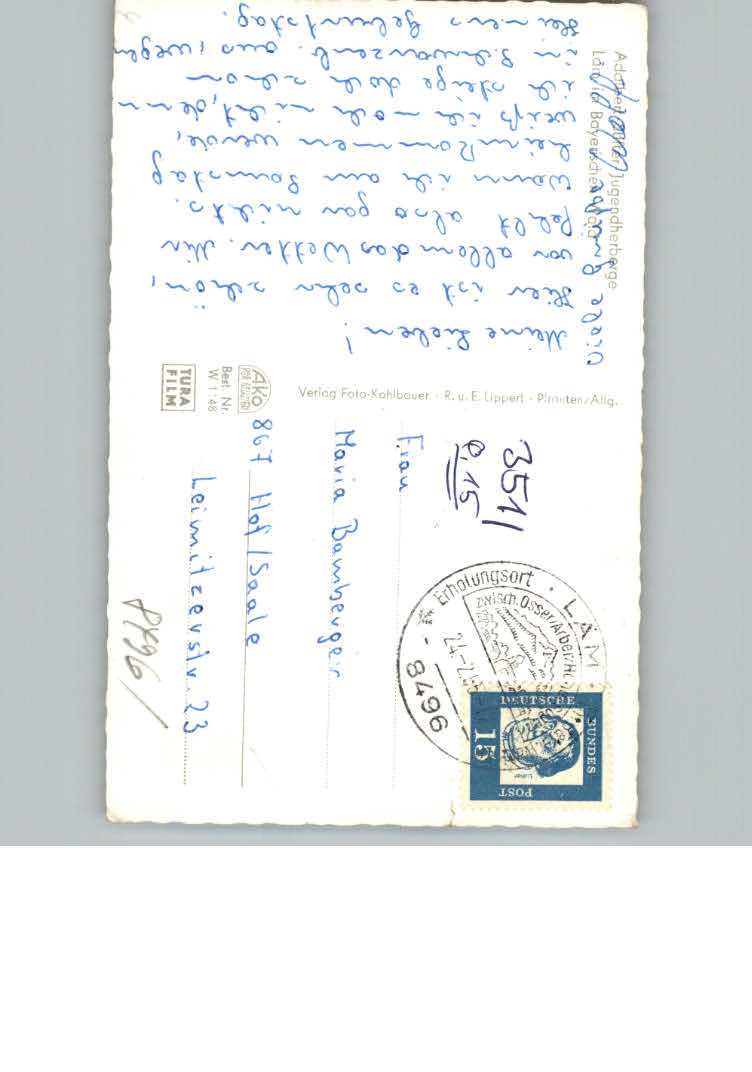 Adalbert Stifter Jugendherberge
Lam im Bayerischen Wald
Meine Lieben!
Hier ist es sehr schön,
vor allem das Wetter. Mir
fehlt also gar nichts.
Wann ich am Samstag
heimkommen werde,
weiß ich noch nicht, denn
ich steige doch schon
in Schwarzenb. aus, wegen
Heiners Geburtstag.
Viele Grüße
Verlag Foto-Kohlbauer · R. u. E. Lippert · Pfronten/Allg.
Ako
Best. Nr.
W 1148
TURA
FILM
351/
0,15
Frau
Maria Bamberger
867 Hof/Saale
Leimitzerstr. 23
Erholungsort · LAM ·
zwisch. Osser/Arber/
8496
DEUTSCHE
BUNDES
POST
15
Luther